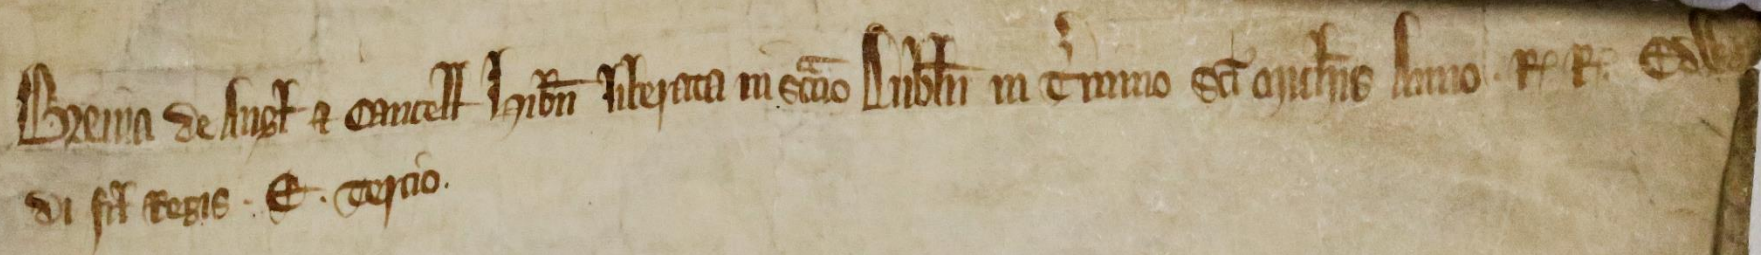 Breuia de Angl & Cancell Hibn liberata in sccio Dublin in Tmino Sci Michis Anno . R. R. Edwar
di fil Regis . E . Tercio .